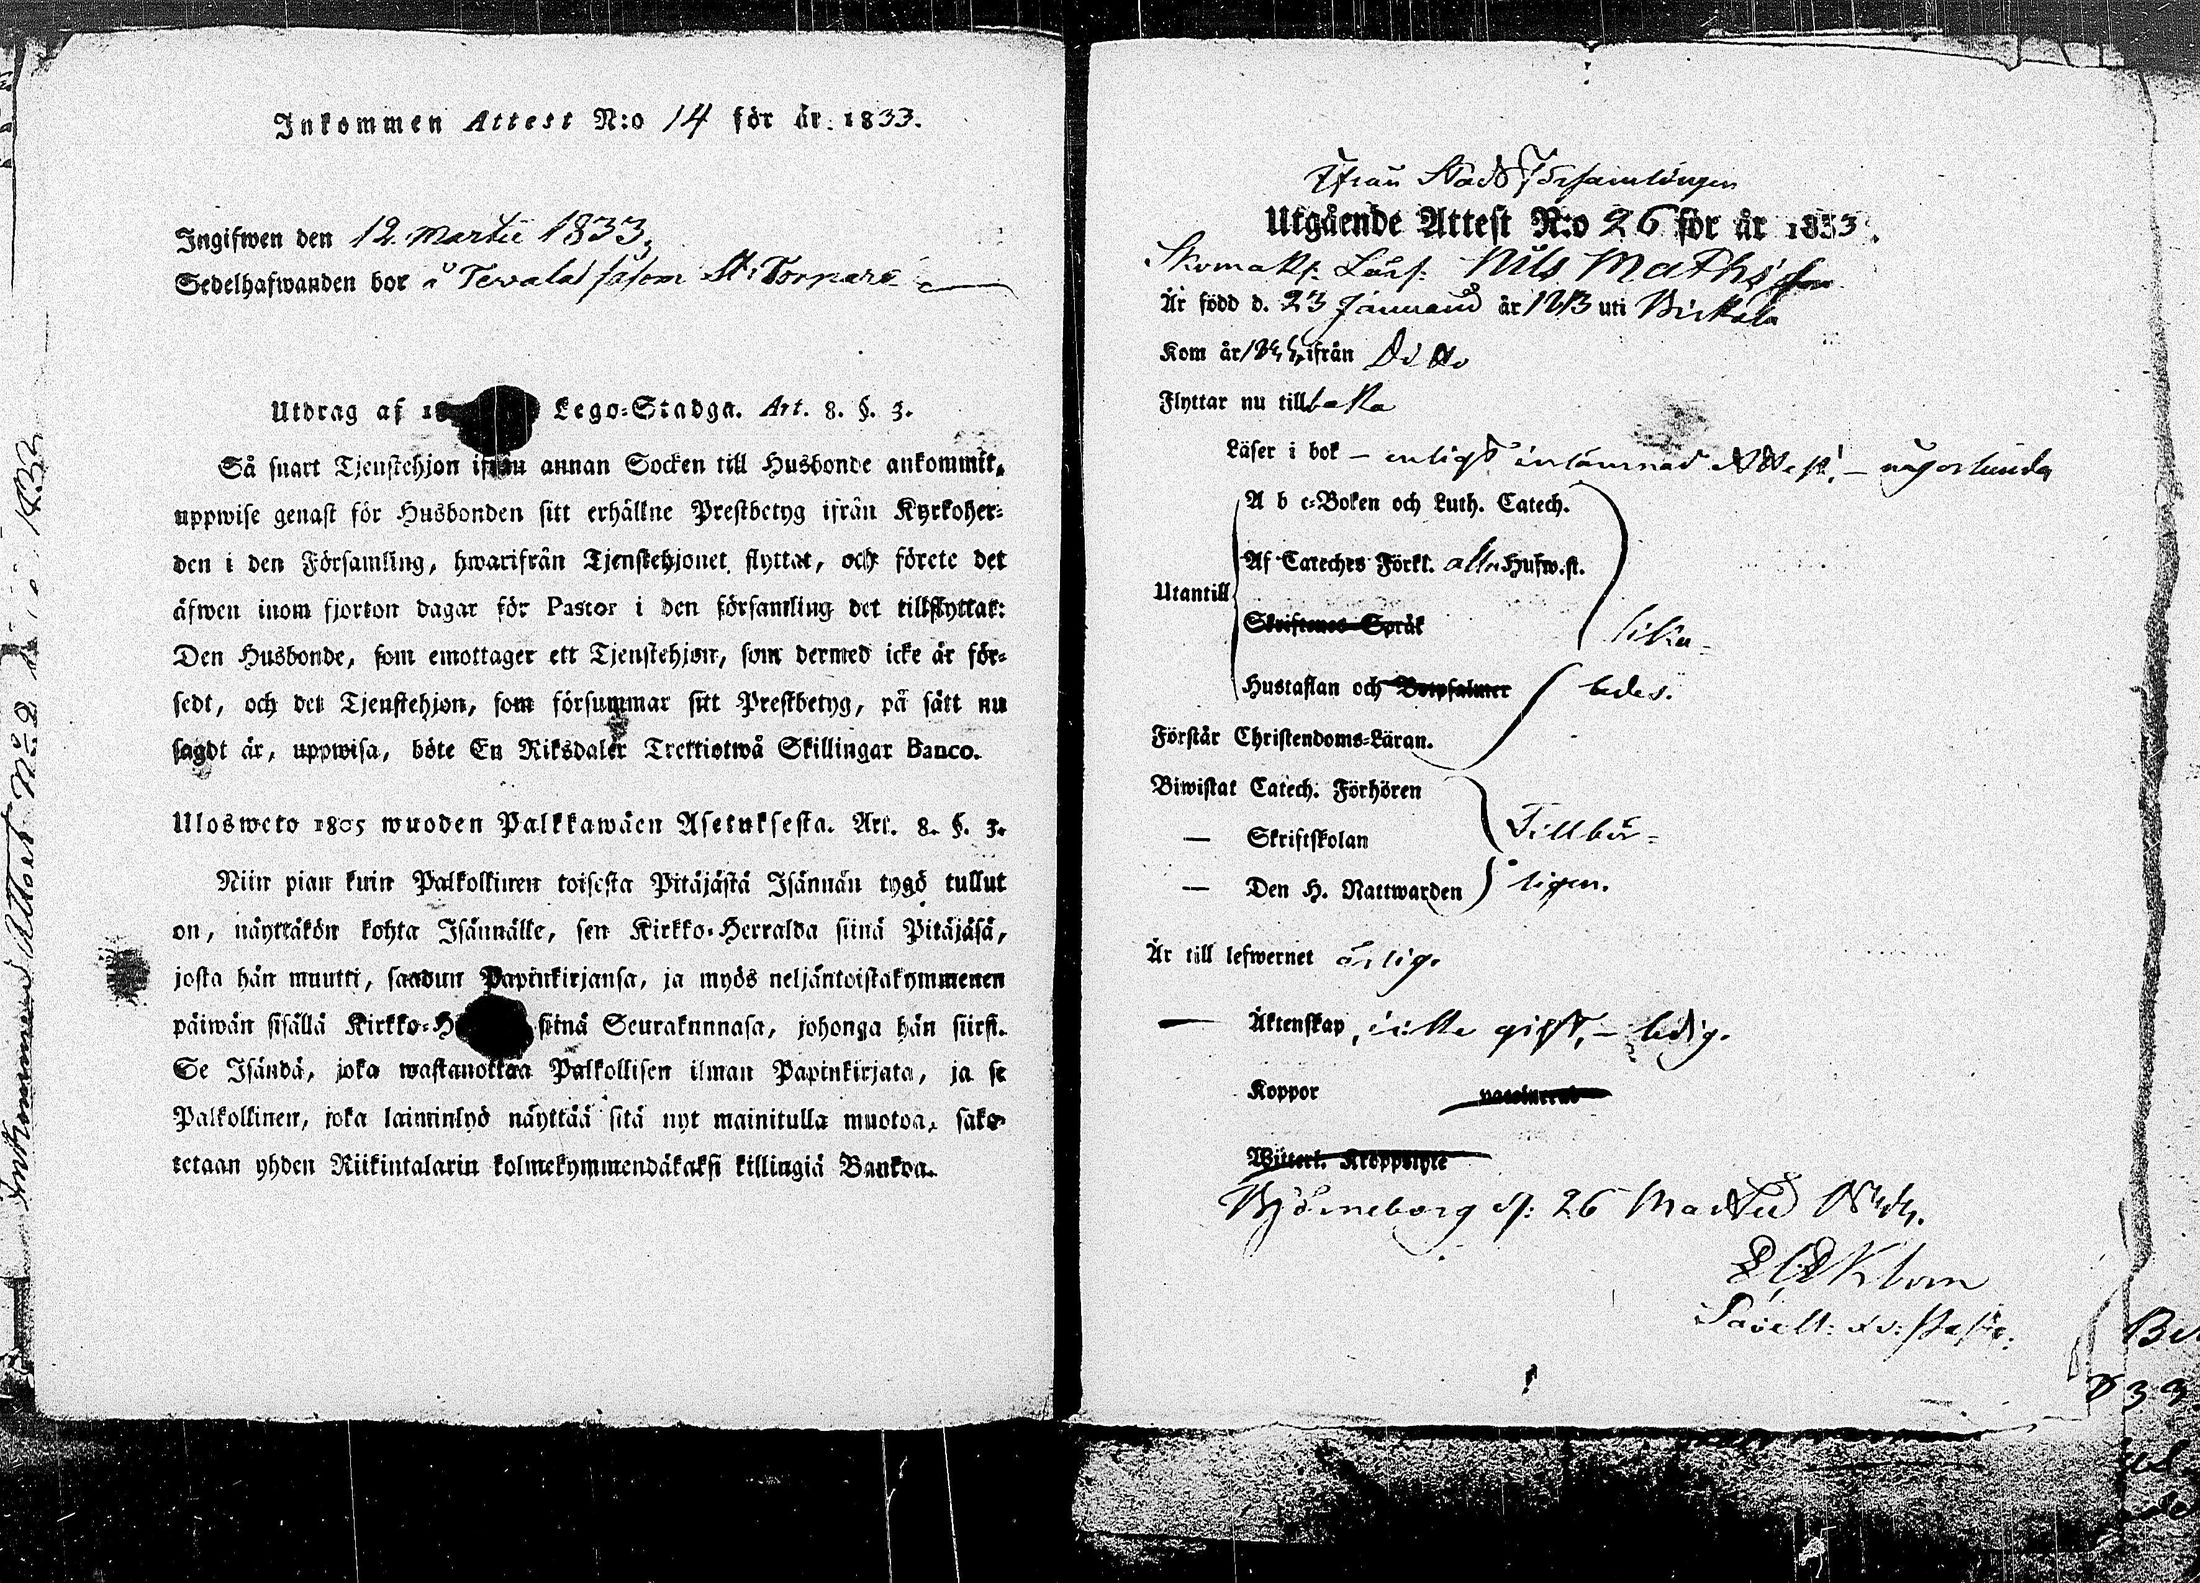 Inkommen Attest N:o 14 för år 1833.
Ingifwen den 12. Martii 1833.
Sedelhafwanden bor i Tevala såsom St: Torpare
Utdrag af Lego-Stadga. Art. 8. §. 3.
Så snart Tjenstehjon ifrån annan Socken till Husbonde ankommit,
uppwise genast för Husbonden sitt erhållne Prestbetyg ifrån Kyrkoher-
den i den Församling, hwarifrån Tjenstehjonet flyttat, och förete det
äfwen inom fjorton dagar för Pastor i den församling det tillflyttat:
Den Husbonde, som emottager ett Tjenstehjon, som dermed icke är för-
sedt, och det Tjenstehjon, som försummar sitt Prestbetyg, på sätt nu
sagdt är, uppwisa, böte En Riksdaler Trettiotwå Skillingar Banco.
Ulosweto 1805 wuoden Palkkawäen Asetuksesta. Art. 8. §. 3.
Niin pian kuin Palkollinen toisesta Pitäjästä Isännän tygö tullut
on, näyttäkön kohta Isännälle, sen Kirkko-Herralda siinä Pitäjäsä,
josta hän muutti, saadun Papinkirjansa, ja myös neljäntoistakymmenen
päiwän sisällä Kirkko-H siinä Seurakunnasa, johonga hän siirsi.
Se Isändä, joka wastanottaa Palkollisen ilman Papinkirjata, ja se
Palkollinen, joka laiminlyö näyttää sitä nyt mainitulla muotoa, sako-
tetaan yhden Riikintalarin kolmekymmendäkaksi killingiä Bankoa.
Inkommen Attest No 2 1832
Ifrån Stads Församlingen
Utgående Attest N:o 26 för år 1833.
Skomak: Lärl: Nils Mathsson
Är född d. 23 Januarii år 1813 uti Birkala
Kom år ifrån Ditto
Flyttar nu tillbaka
Läser i bok – enligt inlämnad Attest, – någorlunda
A b c-Boken och Luth. Catech.
Af Cateches Förkl. alla Hufw.st.
Utantill
Skriftenes Språk
lika-
Hustaflan och Botpsalmer
ledes.
Förstår Christendoms-Läran.
Biwistat Catech. Förhören
— Skriftskolan
Tillbör-
— Den H. Nattwarden
ligen.
Är till lefwernet ärlig.
— Äktenskap, icke gift, – ledig.
Koppor vaccinerad
Witterl. Kroppslyte
Björneborg d: 26 Martii